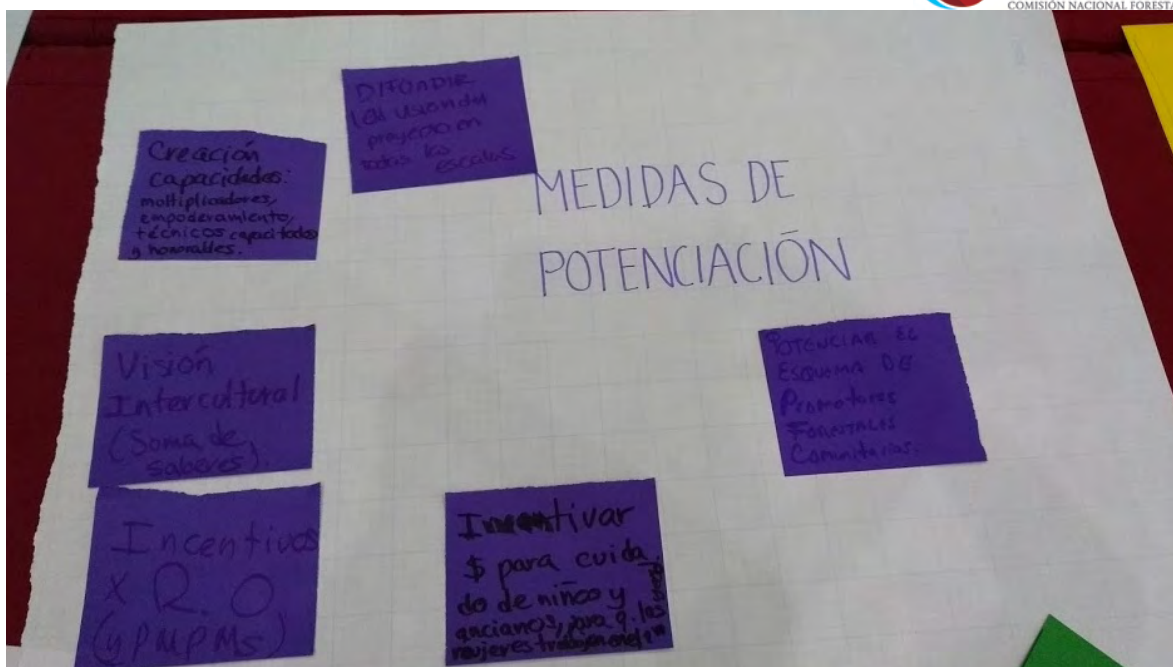 COMISIÓN NACIONAL FORESTA
DIFUNDIR
proyecto en
todas las
escalas
Creación
capacidades:
moltiplicadores,
empoderamiento,
técnicos capacitados
y honorables.
MEDIDAS DE
POTENCIACIÓN
Visión
Intercultural
(Soma de
saberes).
POTENCIAR EL
ESQUEMA DE
Promotores
FORESTALES
Comunitarios.
Incentivos
X R. O
(y PMPMs)
Incentivar
$ para cuida
do de niños y
ancianos, para q. las
mujeres trabajen en el